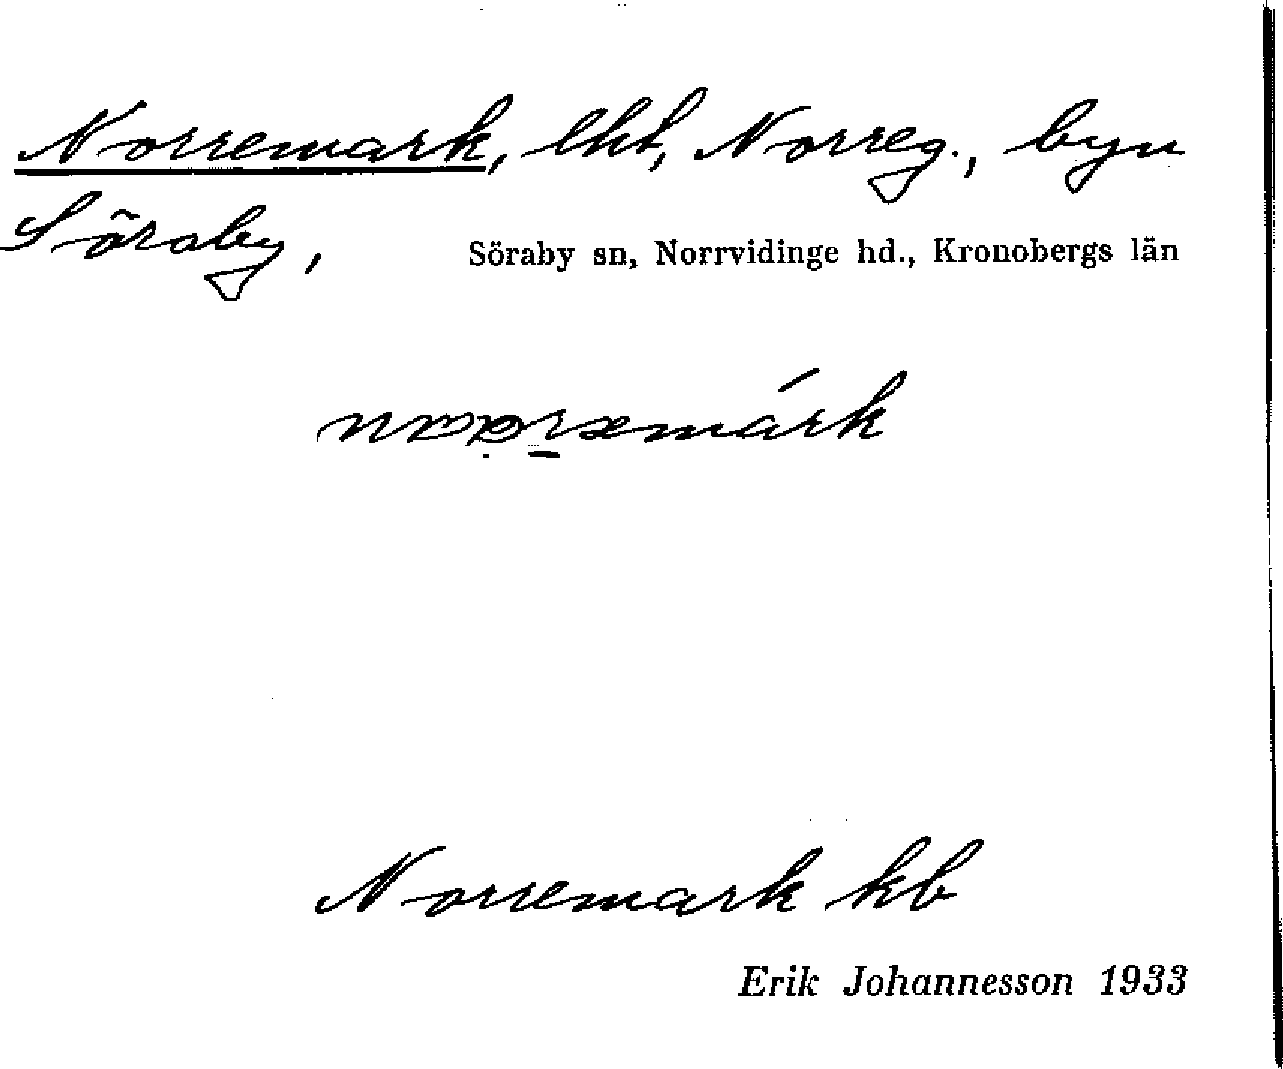 Norremark, lht, Norreg., byn
Söraby,
Söraby sn, Norrvidinge hd., Kronobergs län
Norremark kb
Erik Johannesson 1933